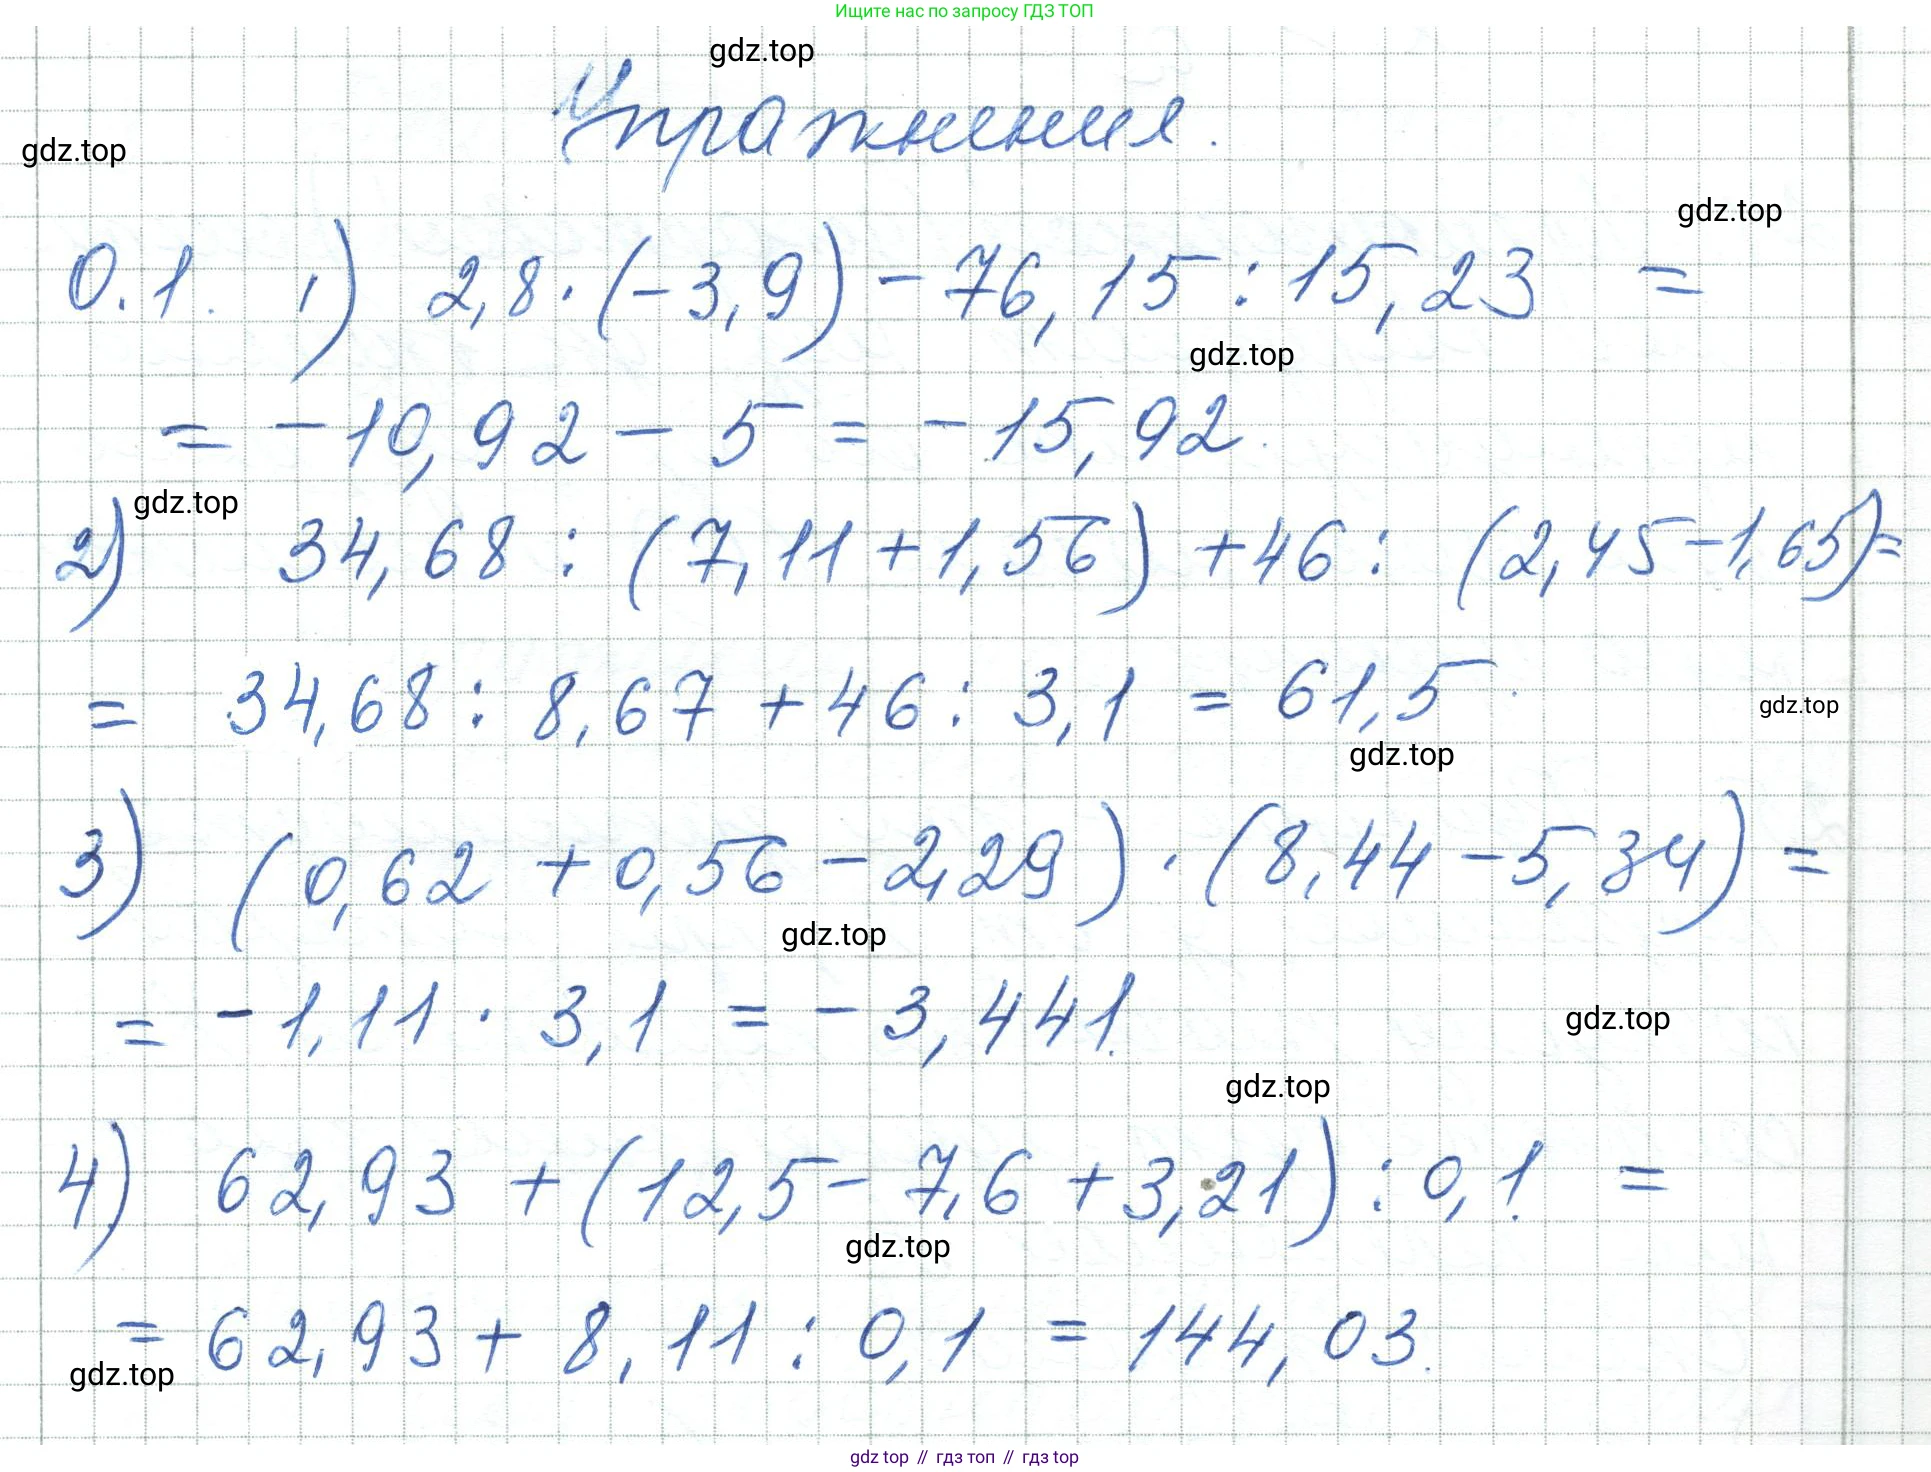 Ищите нас по запросу ГДЗ ТОП
gdz.top
Упражнения.
gdz.top
gdz.top
0.1. 1) 2,8·(-3,9)-76,15:15,23 =
gdz.top
= -10,92-5 = -15,92.
gdz.top
2) 34,68 : (7,11+1,56) +46: (2,45-1,65)=
= 34,68 : 8,67 +46 : 3,1 = 61,5.
gdz.top
gdz.top
3) (0,62 +0,56-2,29)·(8,44-5,34) =
gdz.top
= -1,11 · 3,1 = -3,441.
gdz.top
gdz.top
4) 62,93 + (12,5- 7,6 +3,21) : 0,1 =
gdz.top
= 62,93 + 8,11 : 0,1 = 144,03.
gdz.top
gdz top // гдз топ // гдз top